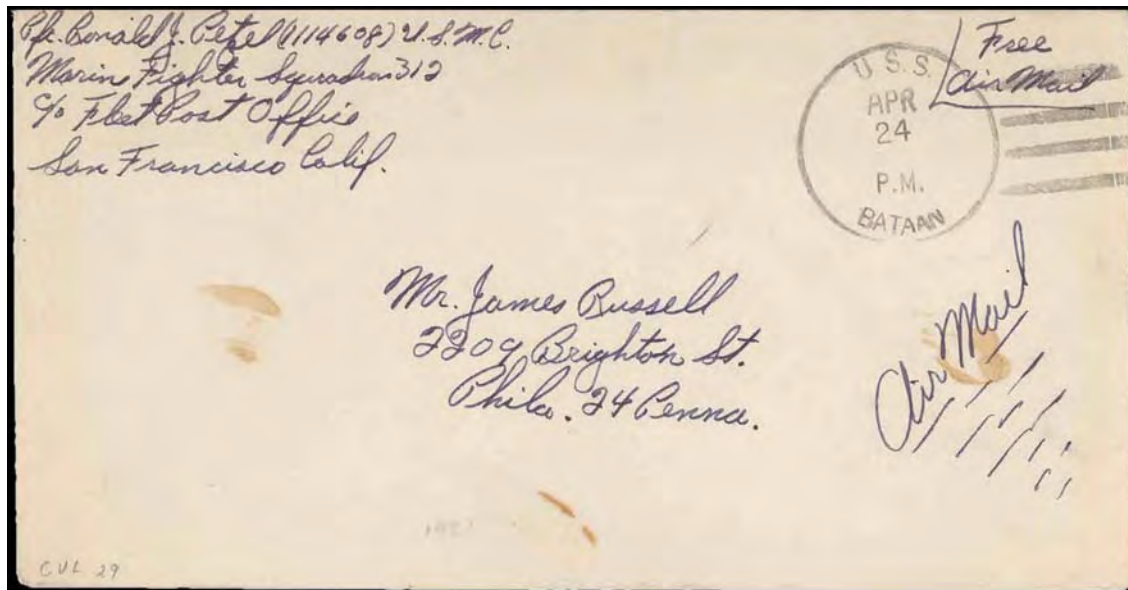 Pfc. Ronald J. Petzel (1114608) U.S.M.C.
Marine Fighter Squadron 312
c/o Fleet Post Office
San Francisco Calif.
Free
Air Mail
U.S.S.
APR
24
P.M.
BATAAN
Mr. James Russell
2209 Brighton St.
Phila. 24 Penna.
Air Mail
CVL 29